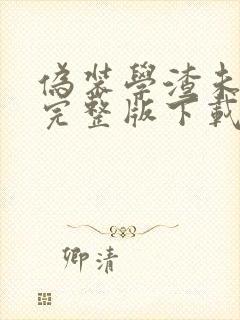 偽裝學渣未
完整版下載
卿清